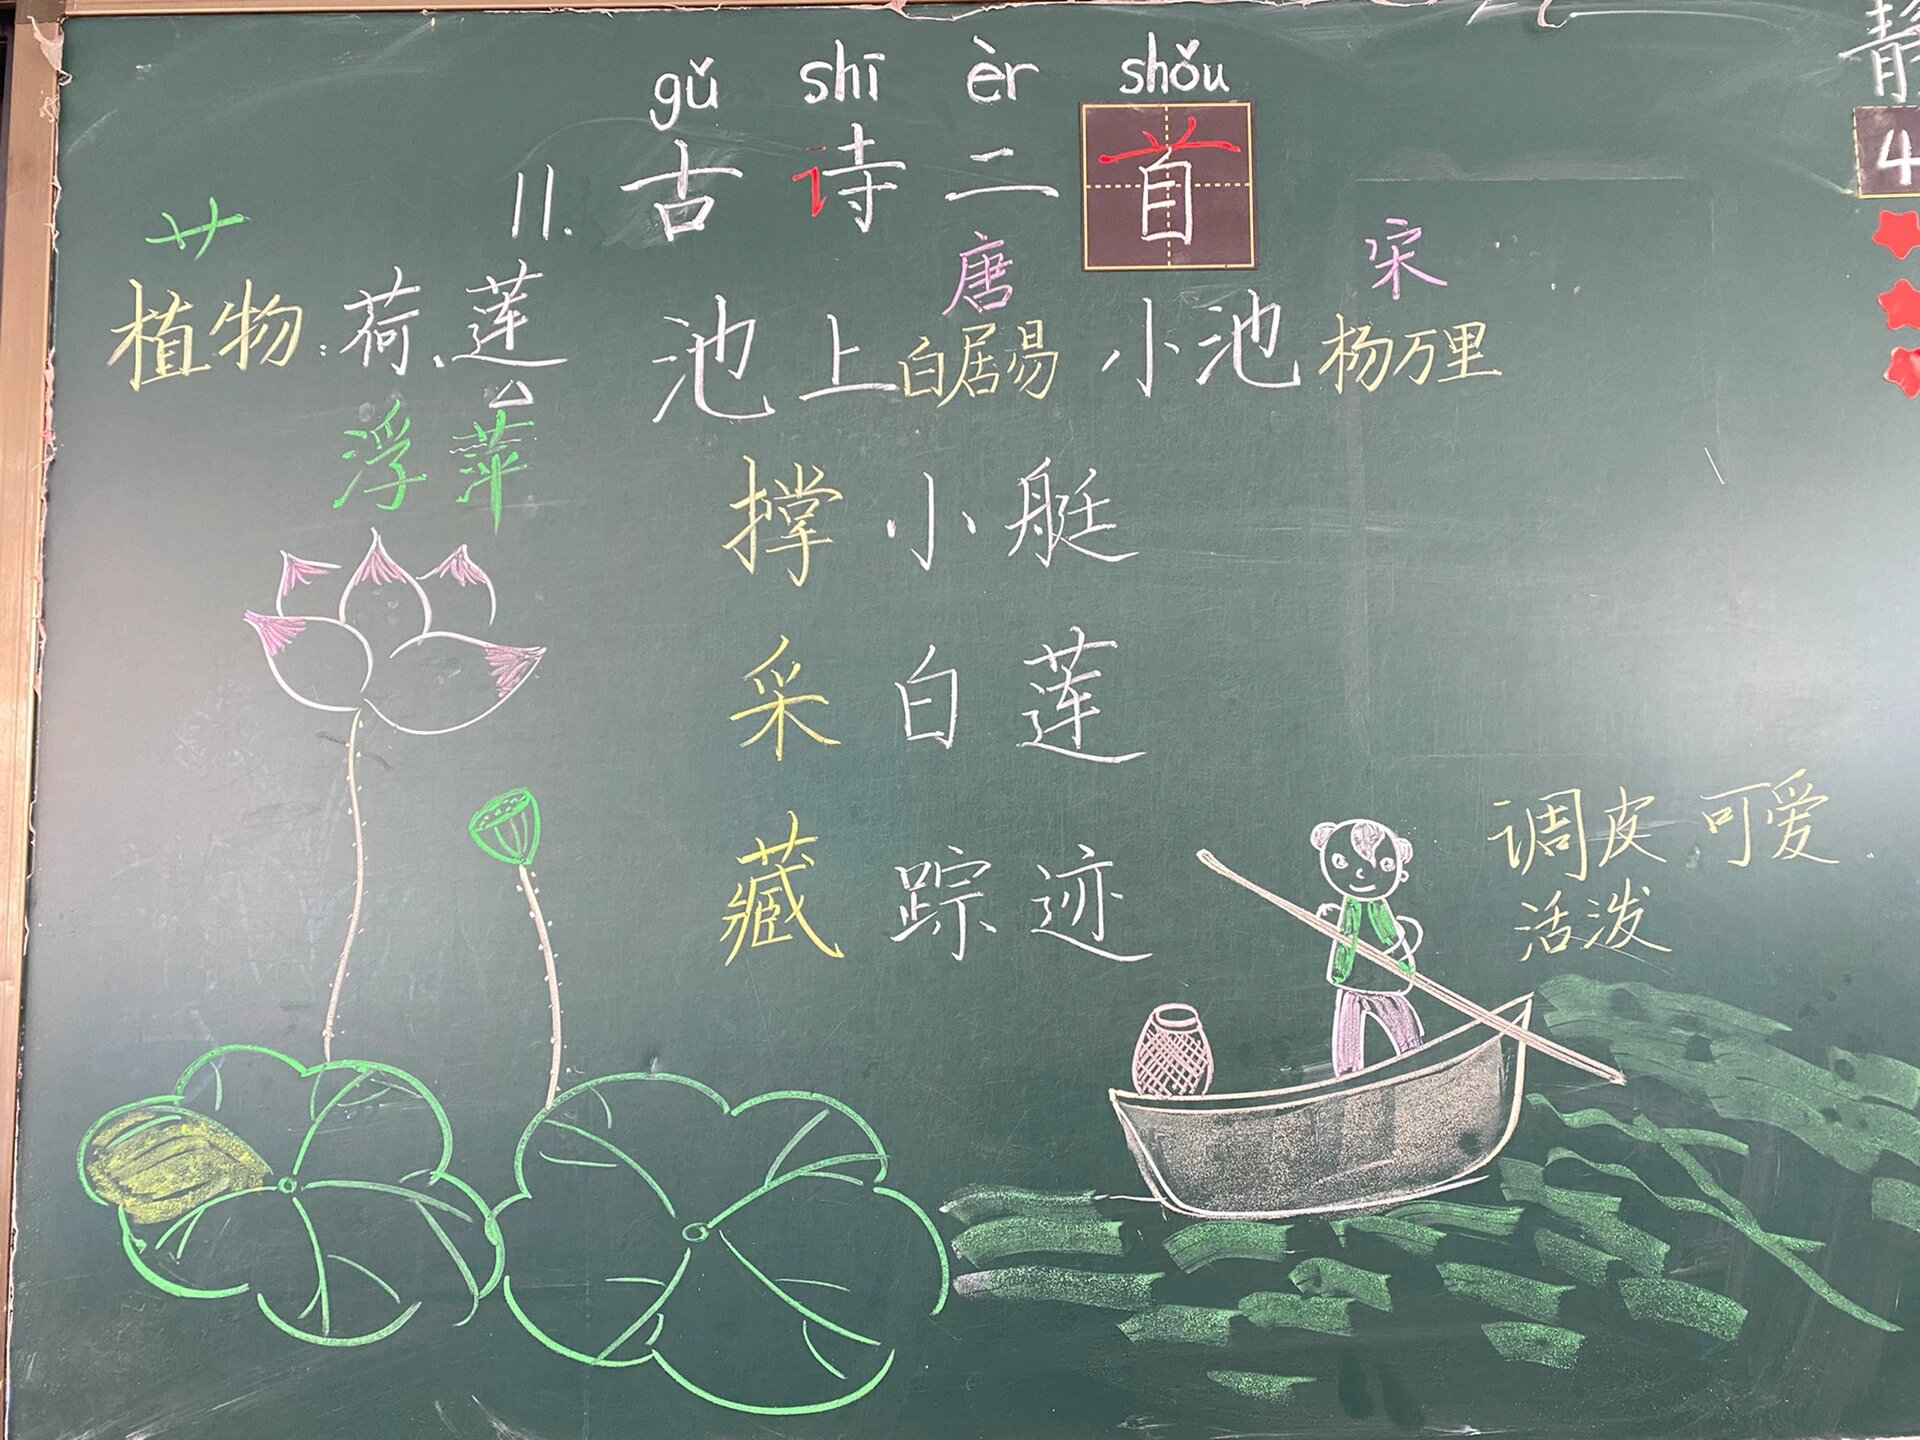 gǔ shī èr shǒu
11. 古诗二首
艹
植物：荷、莲
浮萍
唐 宋
池上 白居易 小池 杨万里
撑小艇
采白莲
藏踪迹
调皮 可爱.
活泼
静
4